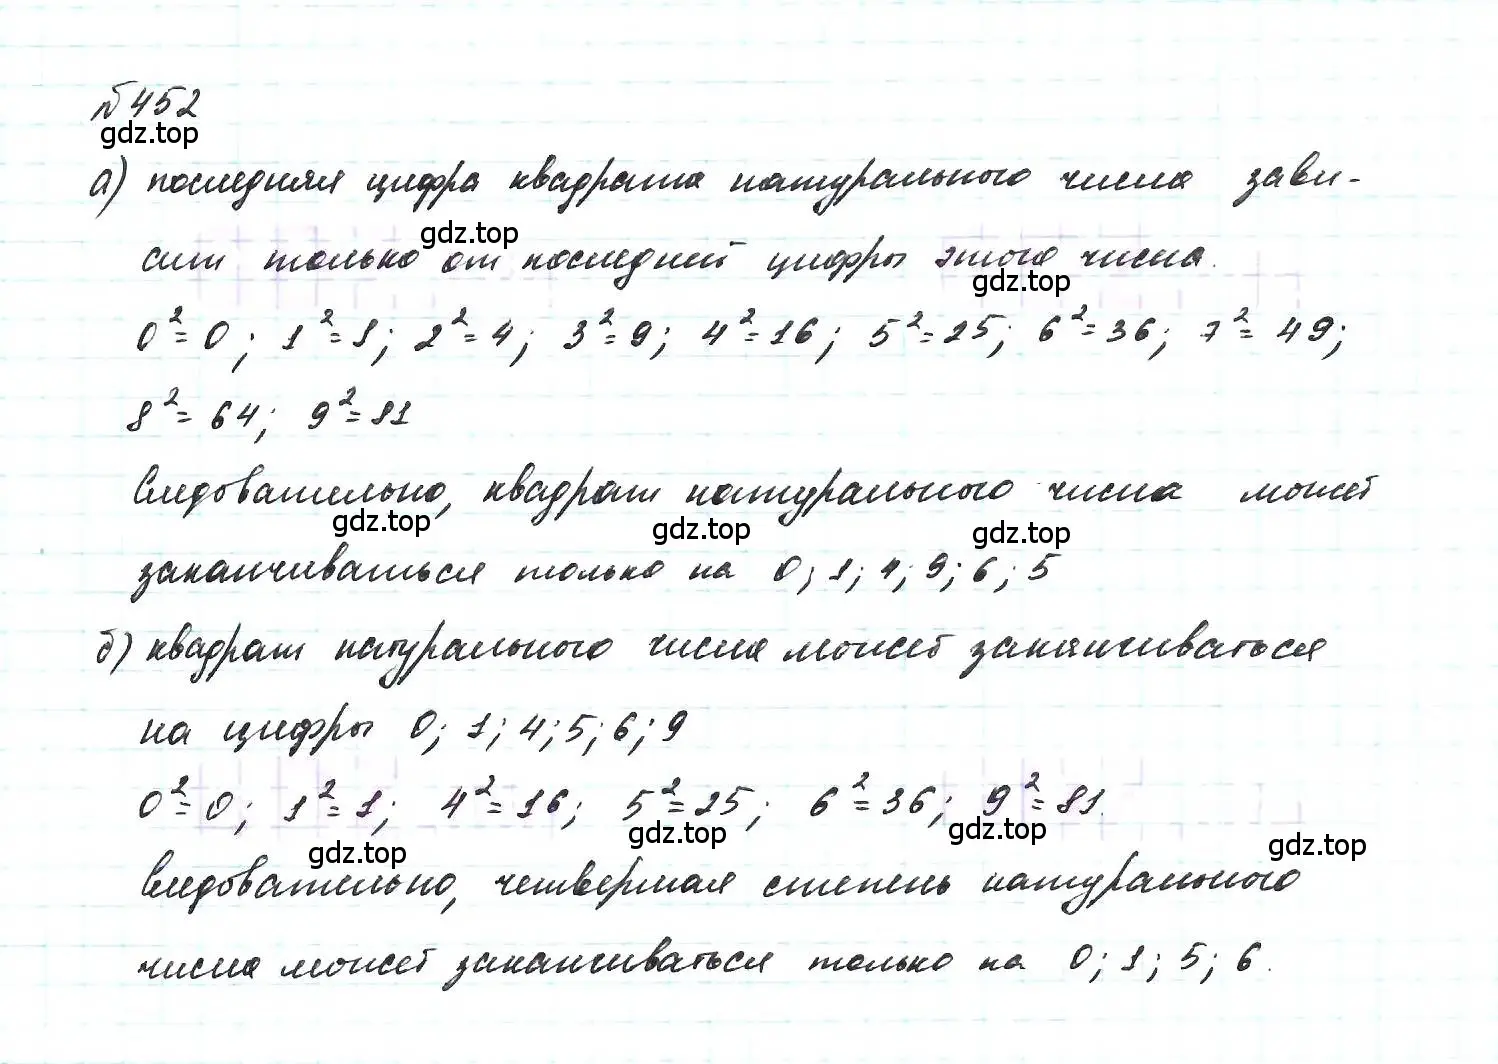 №452
gdz.top
а) последняя цифра квадрата натурального числа зави-
gdz.top
сит только от последней цифры этого числа.
gdz.top
0²=0; 1²=1; 2²=4; 3²=9; 4²=16; 5²=25; 6²=36; 7²=49;
8²=64; 9²=81
Следовательно, квадрат натурального числа может
gdz.top gdz.top gdz.top
заканчиваться только на 0; 1; 4; 9; 6; 5
б) квадрат натурального числа может заканчиваться
на цифры 0; 1; 4; 5; 6; 9
0²=0; 1²=1; 4²=16; 5²=25; 6²=36; 9²=81.
gdz.top gdz.top gdz.top gdz.top
Следовательно, четвертая степень натурального
числа может заканчиваться только на 0; 1; 5; 6.